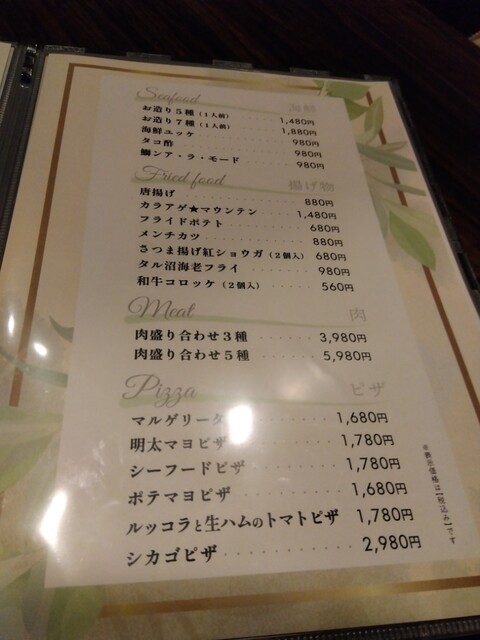 Seafood 海鮮
お造り5種（1人前） 1,480円
お造り7種（1人前） 1,880円
海鮮ユッケ 980円
タコ酢 980円
鰤ンア・ラ・モード 980円
Fried food 揚げ物
唐揚げ 880円
カラアゲ★マウンテン 1,480円
フライドポテト 680円
メンチカツ 880円
さつま揚げ紅ショウガ（2個入） 680円
タル沼海老フライ 980円
和牛コロッケ（2個入） 560円
Meat 肉
肉盛り合わせ3種 3,980円
肉盛り合わせ5種 5,980円
Pizza ピザ
マルゲリータ 1,680円
明太マヨピザ 1,780円
シーフードピザ 1,780円
ポテマヨピザ 1,680円
ルッコラと生ハムのトマトピザ 1,780円
シカゴピザ 2,980円
※表示価格は【税込み】です